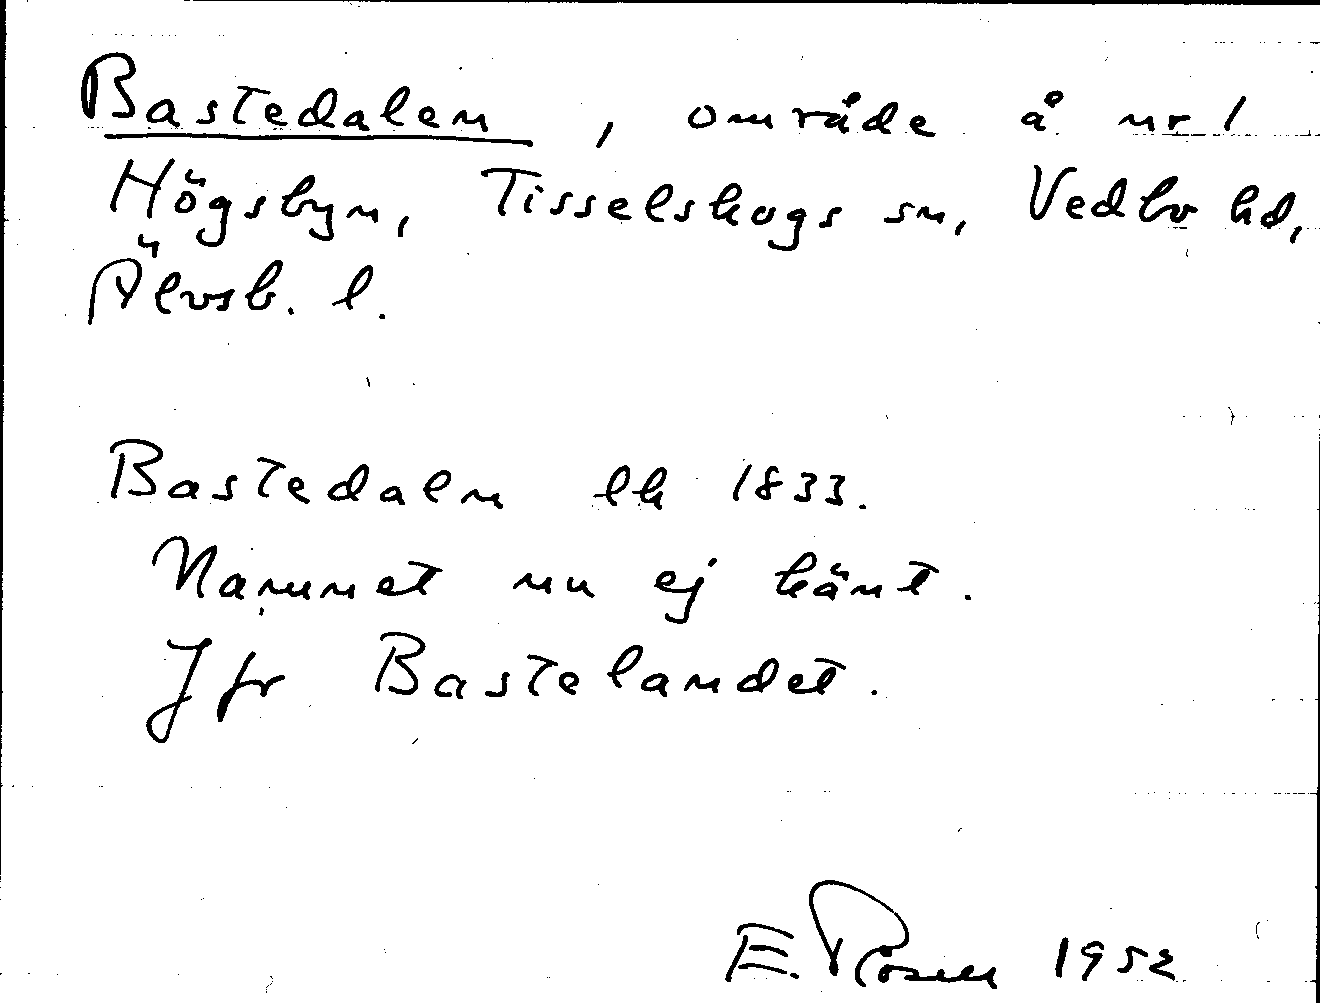 Bastedalen, område å nr 1
Högsbyn, Tisselskogs sn, Vedbo hd,
Älvsb. l.
Bastedaln lk 1833.
Namnet nu ej känt.
Jfr Bastelandet.
E. Rosell 1952